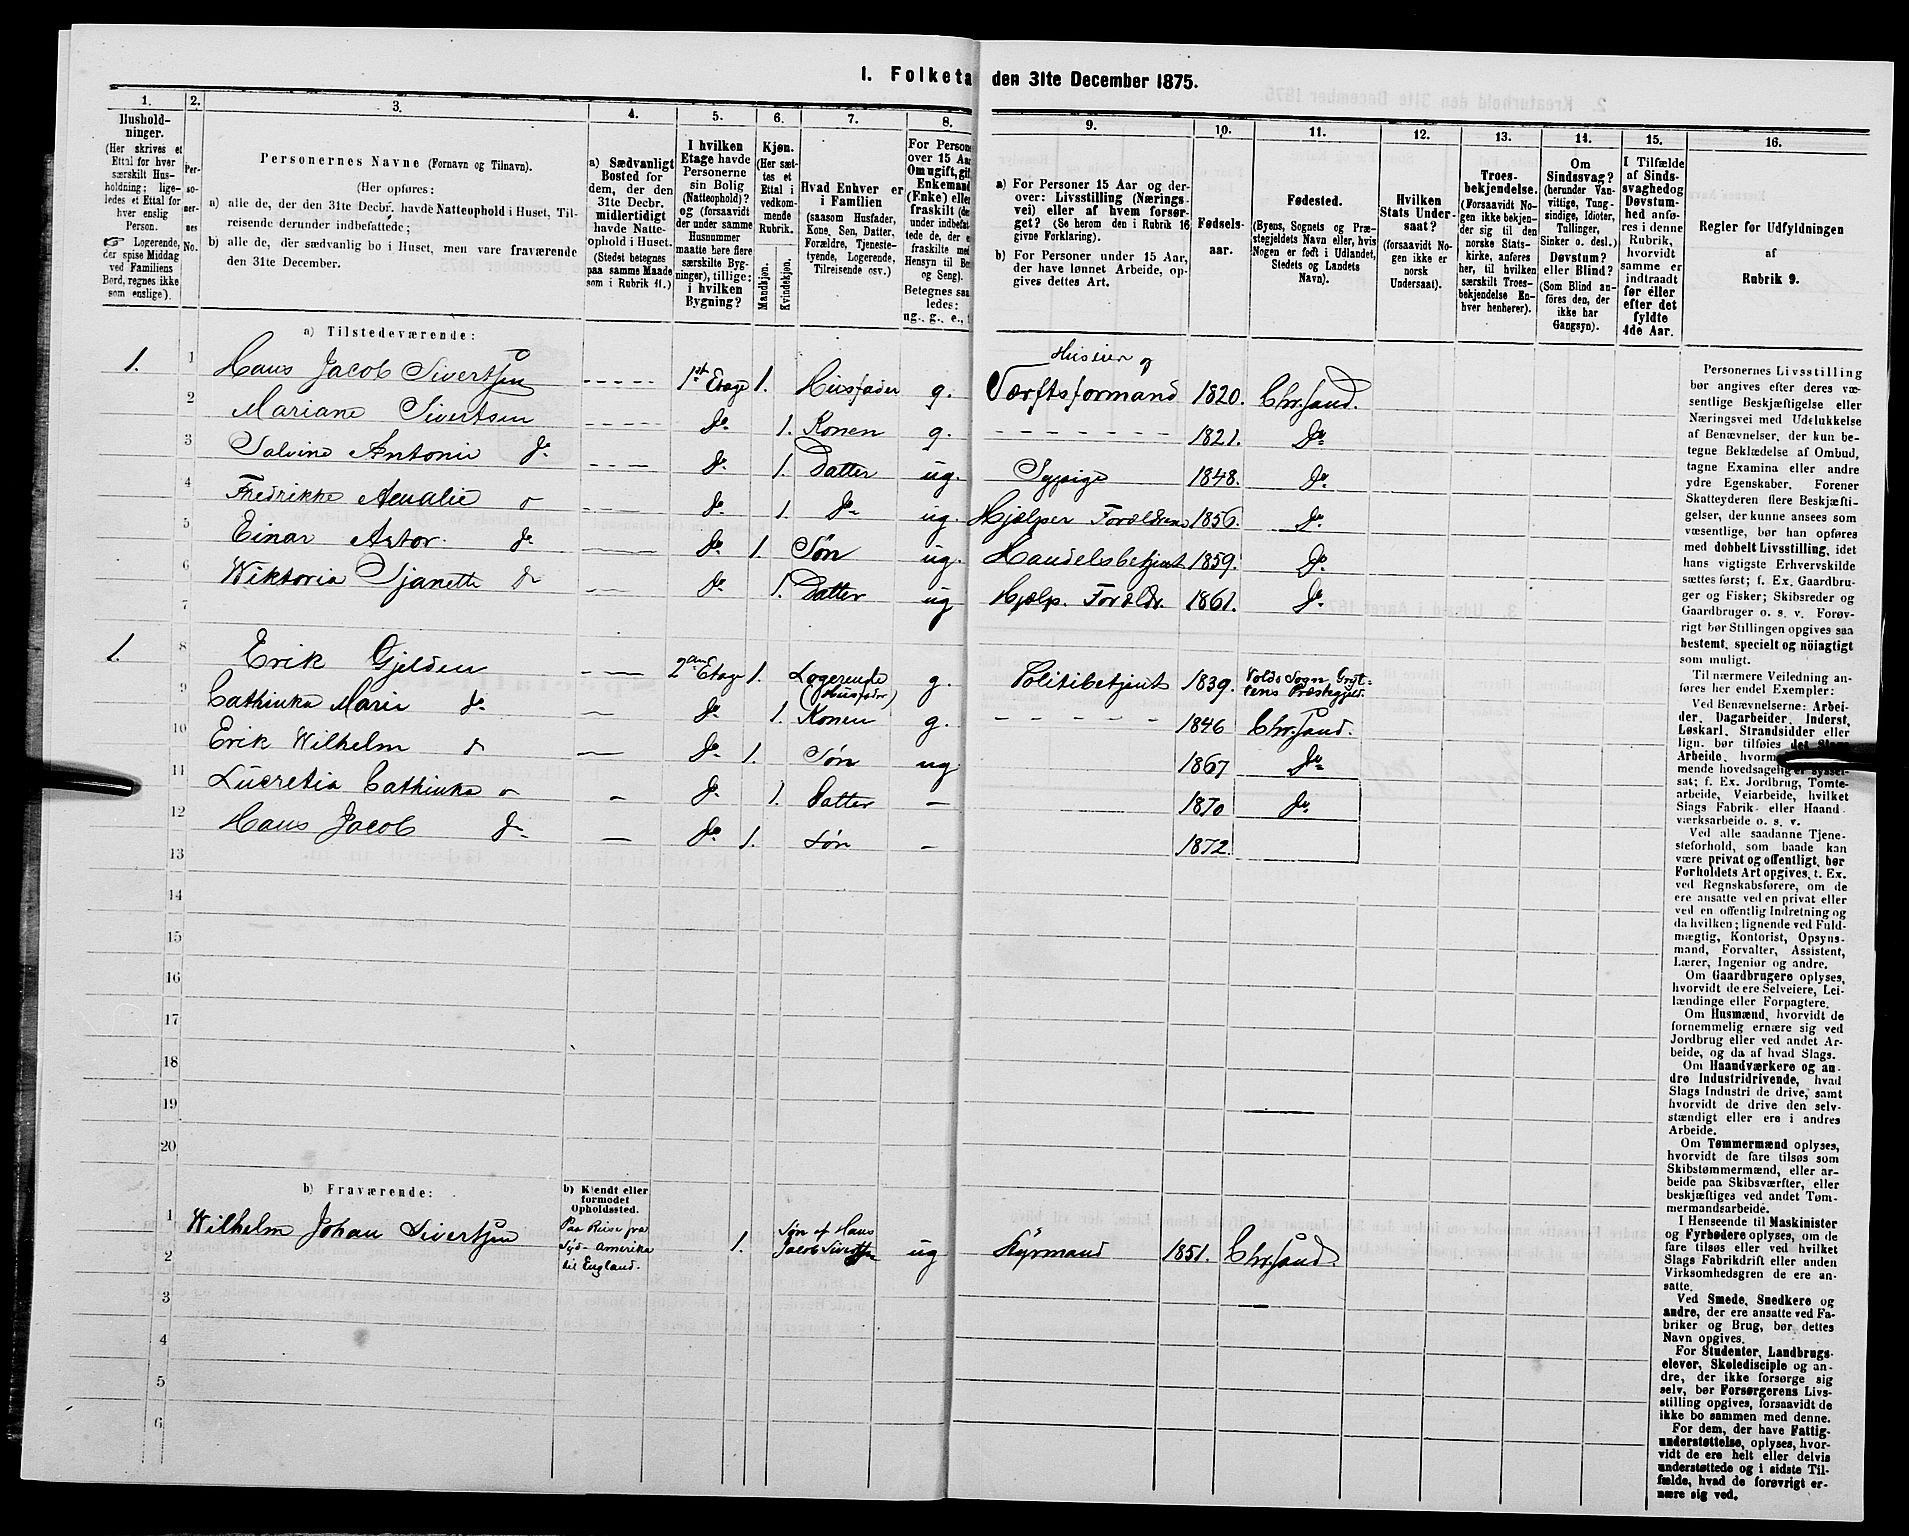 1. Folketa den 31te December 1875.
1. 2. 3. 4. 5. 6. 7. 8. 9. 10. 11. 12. 13. 14. 15. 16.
Hushold-
ninger.
(Her skrives et
Ettal for hver
særskilt Hus-
holdning; lige-
ledes et Ettal for
hver enslig
Person.
Logerende,
der spise Middag
ved Familiens
Bord, regnes ikke
som enslige).
Per-
so-
ner-
nes
No.
Personernes Navne (Fornavn og Tilnavn).
(Her opføres:
a) alle de, der den 31te Decbr. havde Natteophold i Huset, Til-
reisende derunder indbefattede;
b) alle de, der sædvanlig bo i Huset, men vare fraværende
den 31te December.
a) Sædvanligt
Bosted for
dem, der den
31te Decbr.
midlertidigt
havde Natte-
ophold i Huset.
(Stedet betegnes
paa samme Maade
som i Rubrik 11.)
I hvilken
Etage havde
Personerne
sin Bolig
(Natteophold)?
og (forsaavidt
der under samme
Husnummer
maatte høre flere
særskilte Byg-
ninger), tillige:
i hvilken
Bygning?
Kjøn.
(Her sæt-
tes et
Ettal i
vedkom-
mende
Rubrik.
Mandkjøn.
Kvindekjøn.
Hvad Enhver er
i Familien
(saasom Husfader,
Kone, Søn, Datter,
Forældre, Tjeneste-
tyende, Logerende,
Tilreisende osv.)
For Persone
over 15 Aar
Om ugift, gif
Enkemand
(Enke) elle
fraskilt (de
under indbefat
tede de, der e
fraskilte med
Hensyn til Bo
og Seng).
Betegnes saa
ledes:
ug., g., e., f
a) For Personer 15 Aar og der-
over: Livsstilling (Nærings-
vei) eller af hvem forsør-
get? (Se herom den i Rubrik 16
givne Forklaring).
b) For Personer under 15 Aar,
der have lønnet Arbeide, op-
gives dettes Art.
Fødsels-
aar.
Fødested.
(Byens, Sognets og Præ-
stegjeldets Navn eller, hvis
Nogen er født i Udlandet,
Stedets og Landets
Navn).
Hvilken
Stats Under-
saat?
(forsaavidt No-
gen ikke er
norsk
Undersaat).
Troes-
bekjendelse.
(Forsaavidt No-
gen ikke bekjen-
der sig til den
norske Stats-
kirke, anføres
her, til hvilken
særskilt Troes-
bekjendelse En-
hver henhører).
Om
Sindssvag?
(herunder Van-
vittige, Tung-
sindige, Idioter,
Tullinger,
Sinker o. desl.)
Døvstum?
eller Blind?
(Som Blind an-
føres den, der
ikke har
Gangsyn).
I Tilfælde
af Sinds-
svaghed og
Døvstum-
hed anfø-
res i denne
Rubrik,
hvorvidt
samme er
indtraadt
før eller
efter det
fyldte
4de Aar.
Regler for Udfyldningen
af
Rubrik 9.
a) Tilstedeværende:
Huseier og
1. 1 Hans Jacob Sivertsen 1st Etage 1. Husfader g. Værftsformand 1820. Chr.sand.
2 Mariane Sivertsen Do 1. Konen g. 1821. Do
3 Salvine Antonie Do Do 1. Datter ug. Sypige 1848. Do
4 Fredrikke Amalie Do 1. Do ug. Hjælper Forældrene 1856. Do
5 Einar Astor Do Do 1. Søn ug. Handelsbetjent 1859. Do
6 Wiktoria Sjanette Do Do 1. Datter ug Hjælp. Forældr. 1861. Do
7
1. 8 Erik Gjelden 2den Etage 1. Logerende g. Politibetjent 1839. Volds Sogn Gryt-
(Husfader) tens Præstegjeld.
9 Cathinka Marie Do Do 1. Konen g. 1846 Chr.sand.
10 Erik Wilhelm Do Do 1. Søn ug 1867 Do
11 Lucretia Cathinka Do 1. Datter 1870 Do
12 Hans Jacob Do Do 1. Søn 1872.
13
14
15
16
17
18
19
20
b) Fraværende:
b) Kjendt eller
formodet
Opholdssted.
1 Wilhelm Johan Sivertsen Paa Reise fra Syd-Amerika til England. 1. Søn af Hans Jacob Sivertsen ug Styrmand 1851. Chr.sand
2
3
4
5
6
Personernes Livsstilling
bør angives efter deres væ-
sentlige Beskjæftigelse eller
Næringsvei med Udelukkelse
af Benævnelser, der kun be-
tegne Beklædelse af Ombud,
tagne Examina eller andre
ydre Egenskaber. Forener
Skatteyderen flere Beskjæfti-
gelser, der kunne ansees som
væsentlige, bør han opføres
med dobbelt Livsstilling, idet
hans vigtigste Erhvervskilde
sættes først; f. Ex. Gaardbru-
ger og Fisker; Skibsreder og
Gaardbruger o. s. v. Forøv-
rigt bør Stillingen opgives saa
bestemt, specielt og nöiagtigt
som muligt.
Til nærmere Veiledning an-
føres her endel Exempler:
Ved Benævnelserne: Arbei-
der, Dagarbeider, Inderst,
Løskarl, Strandsidder eller
lign. bør tilføies det Slags
Arbeide, hvorm
mende hovedsagelig er syssel-
sat; f. Ex. Jordbrug, Tømte-
arbeide, Veiarbeide, hvilket
Slags Fabrik- eller Haand-
værksarbeide o. s. v.
Ved alle saadanne Tjene-
steforhold, som baade kan
være privat og offentligt, bør
Forholdets Art opgives, t. Ex.
ved Regnskabsførere, om de
ere ansatte ved en privat eller
ved en offentlig Indretning og
da hvilken; lignende ved Fuld-
mægtig, Kontorist, Opsyns-
mand, Forvalter, Assistent,
Lærer, Ingeniør og andre.
Om Gaardbrugere oplyses,
hvorvidt de ere Selveiere, Lei-
lændinge eller Forpagtere.
Om Husmænd, hvorvidt de
fornemmelig ernære sig ved
Jordbrug eller ved andet Ar-
beide, og da af hvad Slags.
Om Haandværkere og an-
dre Industridrivende, hvad
Slags Industri de drive, samt
hvorvidt de drive den selv-
stændigt eller ere i andres
Arbeide.
Om Tømmermænd oplyses,
hvorvidt de fare tilsøs som
Skibstømmermænd, eller ar-
beide paa Skibsværfter, eller
beskjæftiges ved andet Tøm-
mermandsarbeide.
I Henseende til Maskinister
og Fyrbødere oplyses, om de
fare tilsøs eller ved hvilket
Slags Fabrikdrift eller anden
Virksomhedsgren de ere an-
satte.
Ved Smede, Snedkere og
andre, der ere ansatte ved Fa-
briker og Brug, bør dettes
Navn opgives.
For Studenter, Landbrugs-
elever, Skoledisciple og an-
dre, der ikke forsørge sig
selv, bør Forsørgerens Livs-
stilling opgives, forsaavidt de
ikke bo sammen med denne.
For dem, der have Fattig-
understøttelse, oplyses, hvor-
vidt de ere helt eller delvis
understøttede og i sidste Til-
fælde, hvad de forøvrigt er-
nære sig ved.